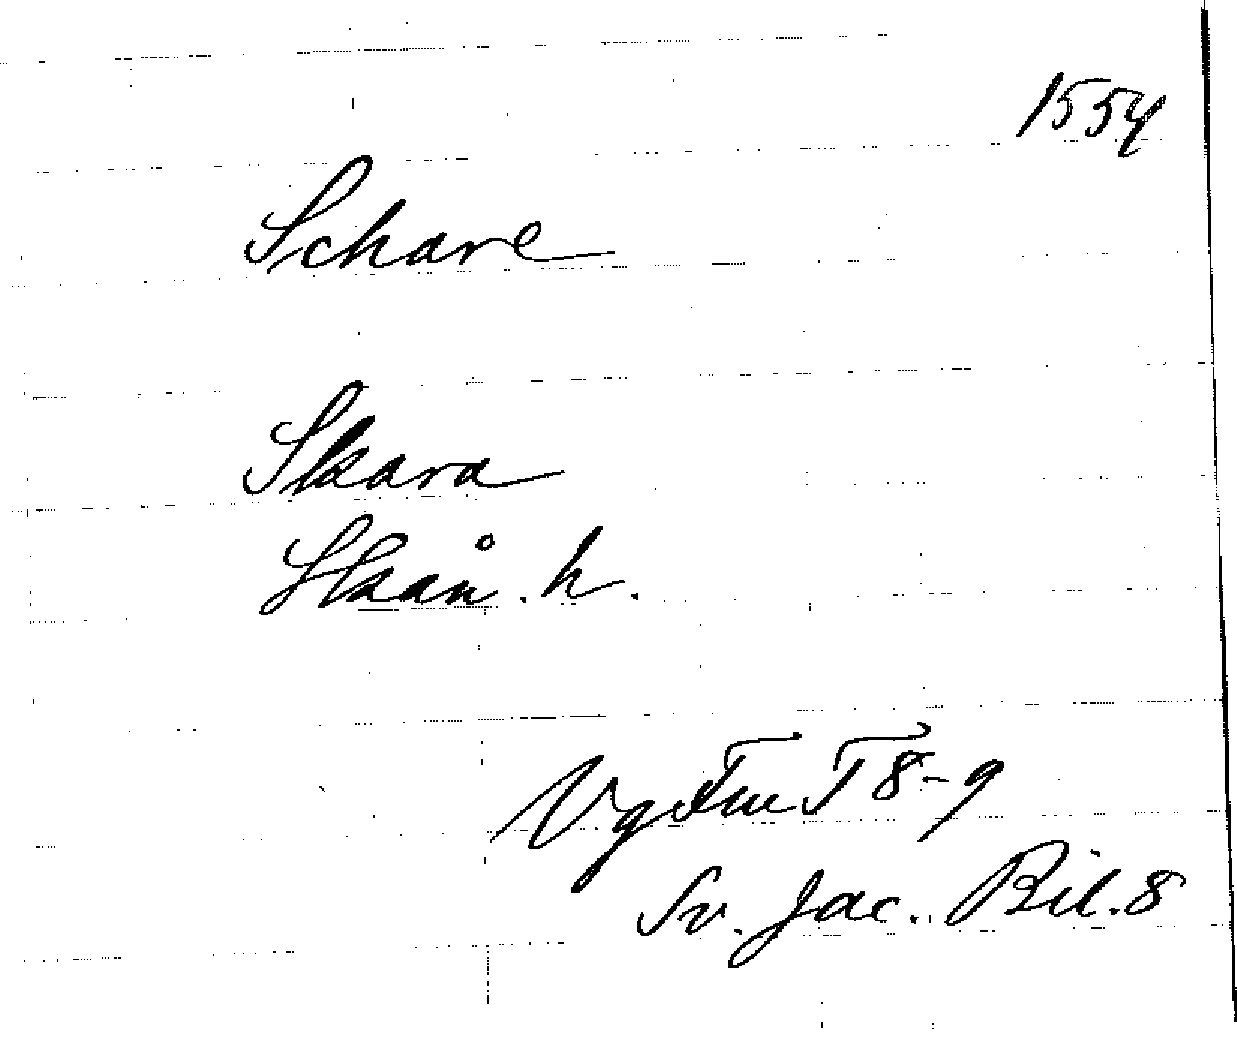 1554
Schare
Skara
Skån. h.
Vg Fmt 8-9
Sv. Jac. Bil. 8